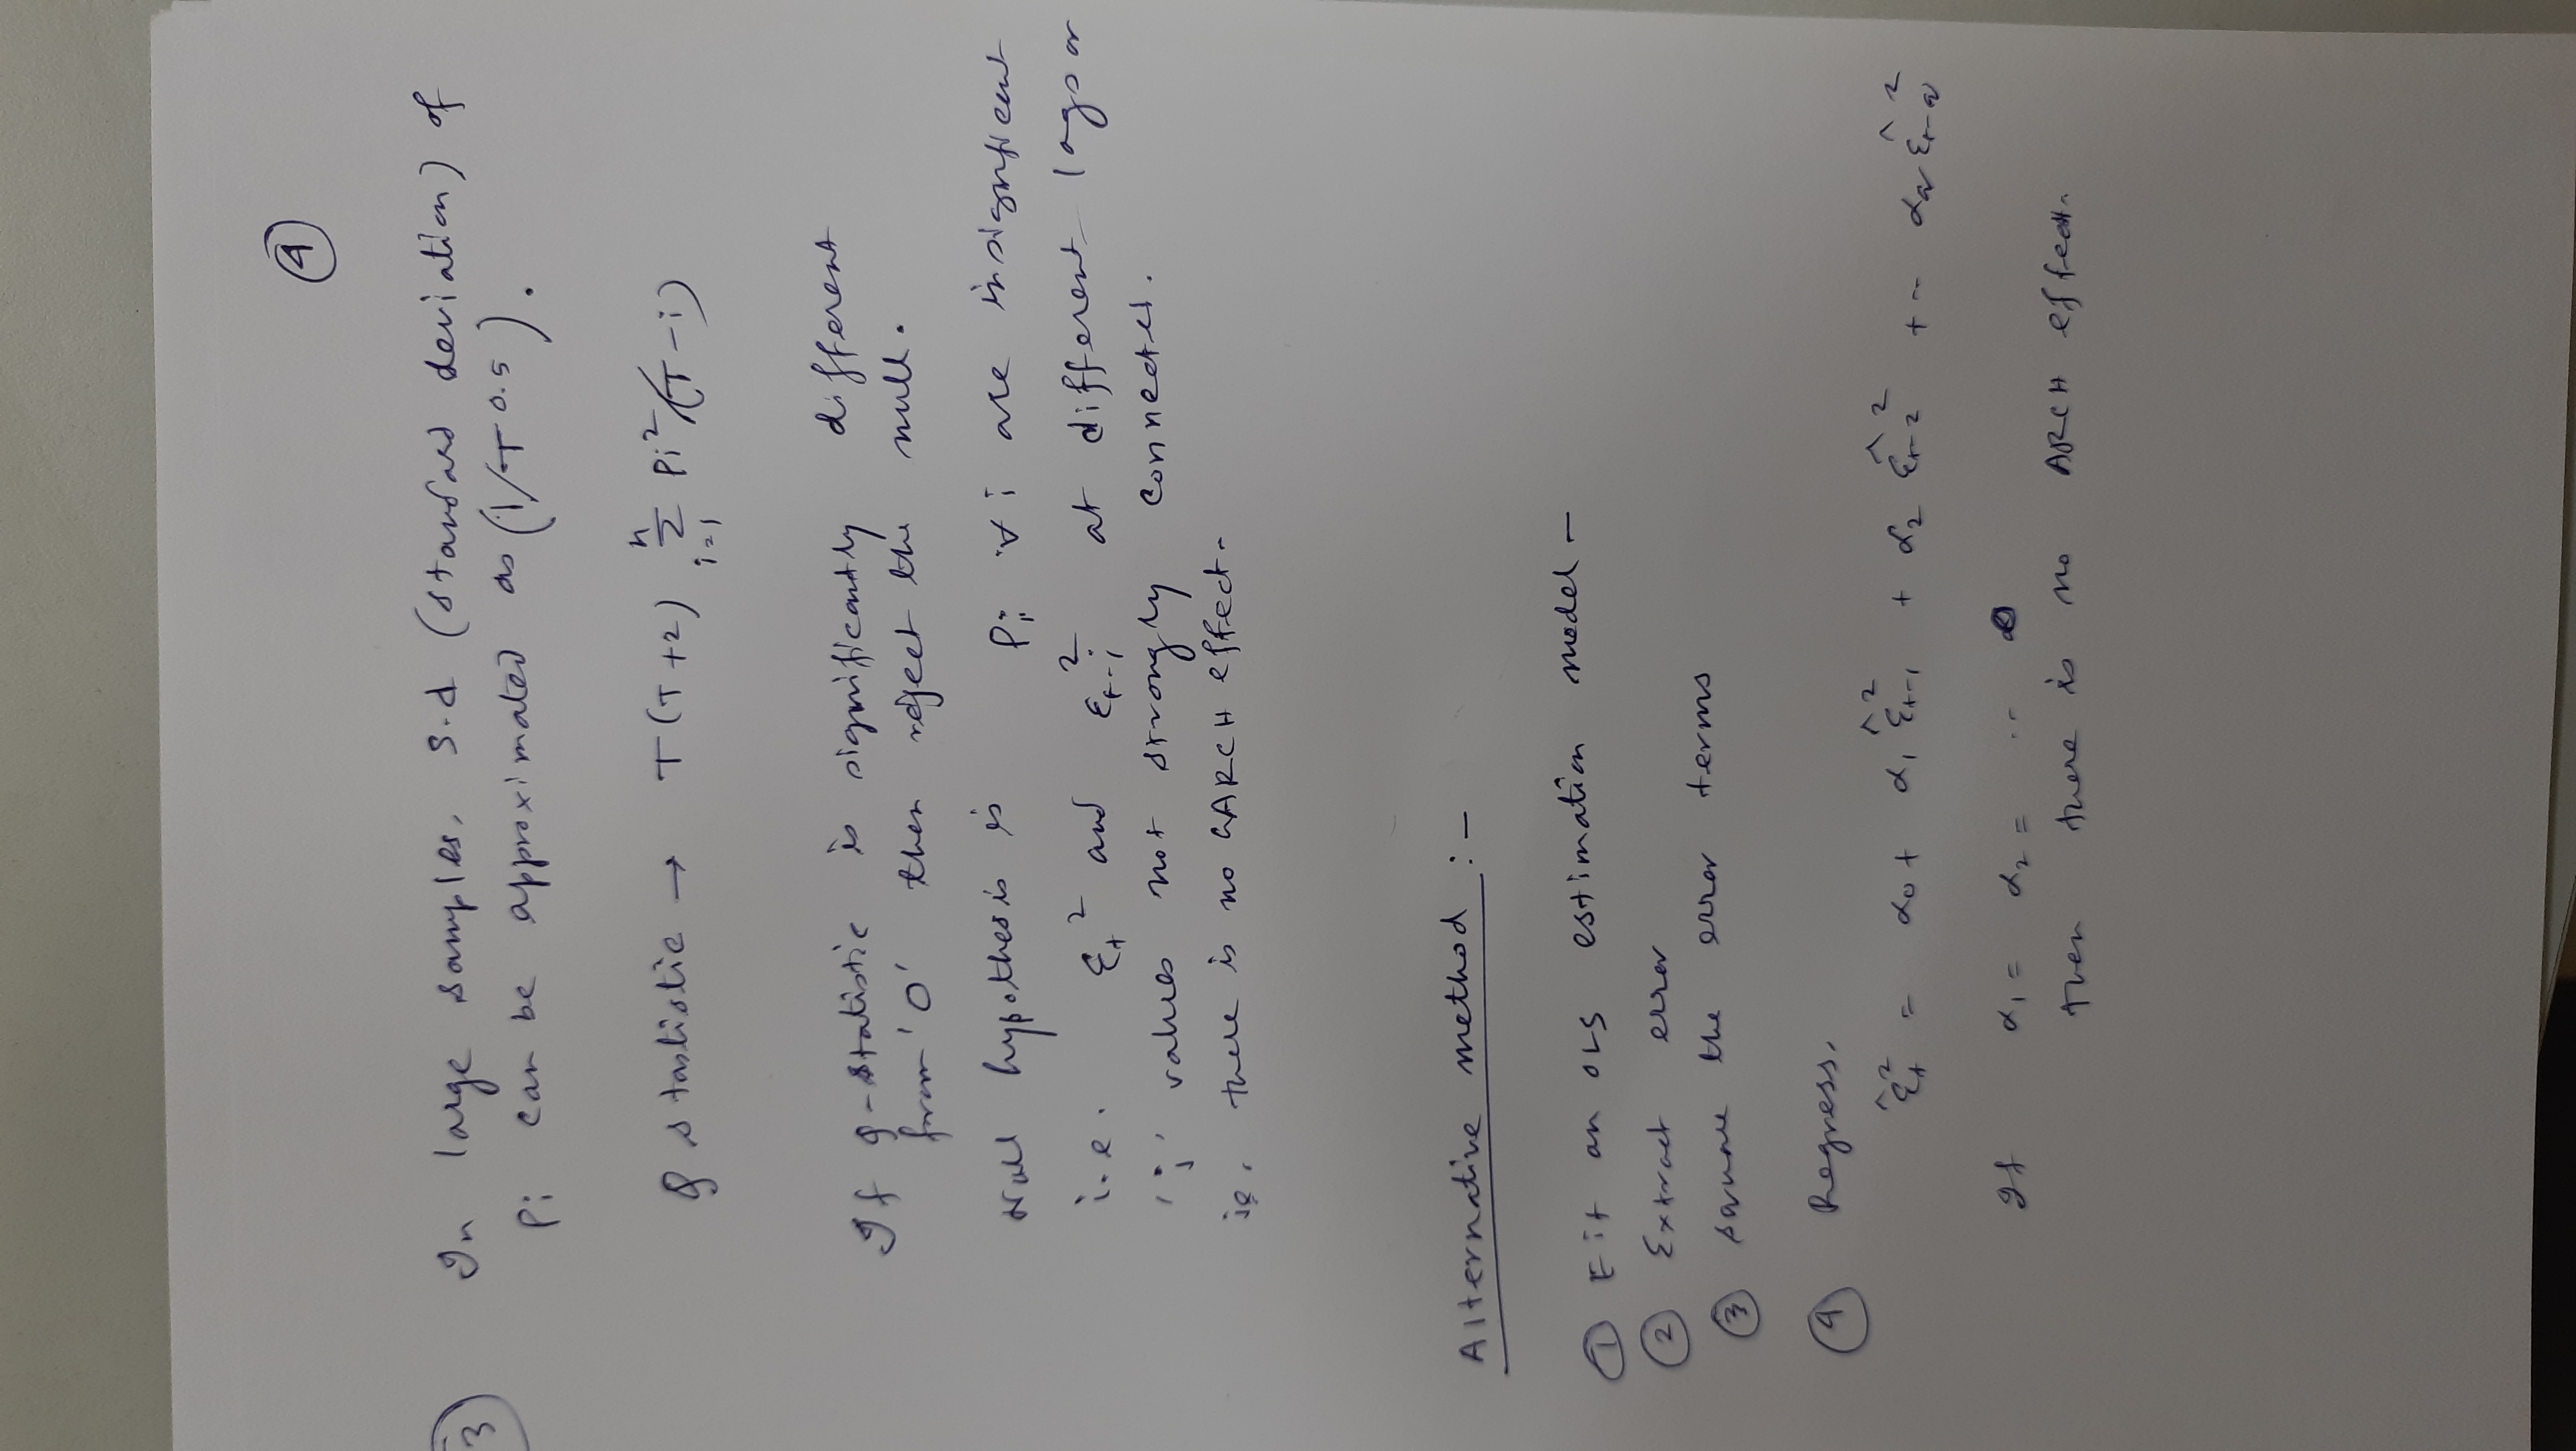 ④
③ In large samples, s.d (standard deviation) of
ρi can be approximated as (1/T^0.5).
Q stastistic → T(T+2) Σ_{i=1}^{n} ρi²/(T-i)
If Q-statistic is significantly different
from '0' then reject the null.
Null hypothesis is ρi ∀ i are insignificant
i.e. ε_t² and ε_{t-i}² at different lags or
'i' values not strongly connected.
ie. there is no GARCH effect.
Alternative method :-
① Fit an OLS estimation model -
② Extract error
③ square the error terms
④ Regress,
ε̂_t² = α0 + α1 ε̂_{t-1}² + α2 ε̂_{t-2}² + -- αq ε̂_{t-q}²
If α1 = α2 = .. 0
then there is no ARCH effect.